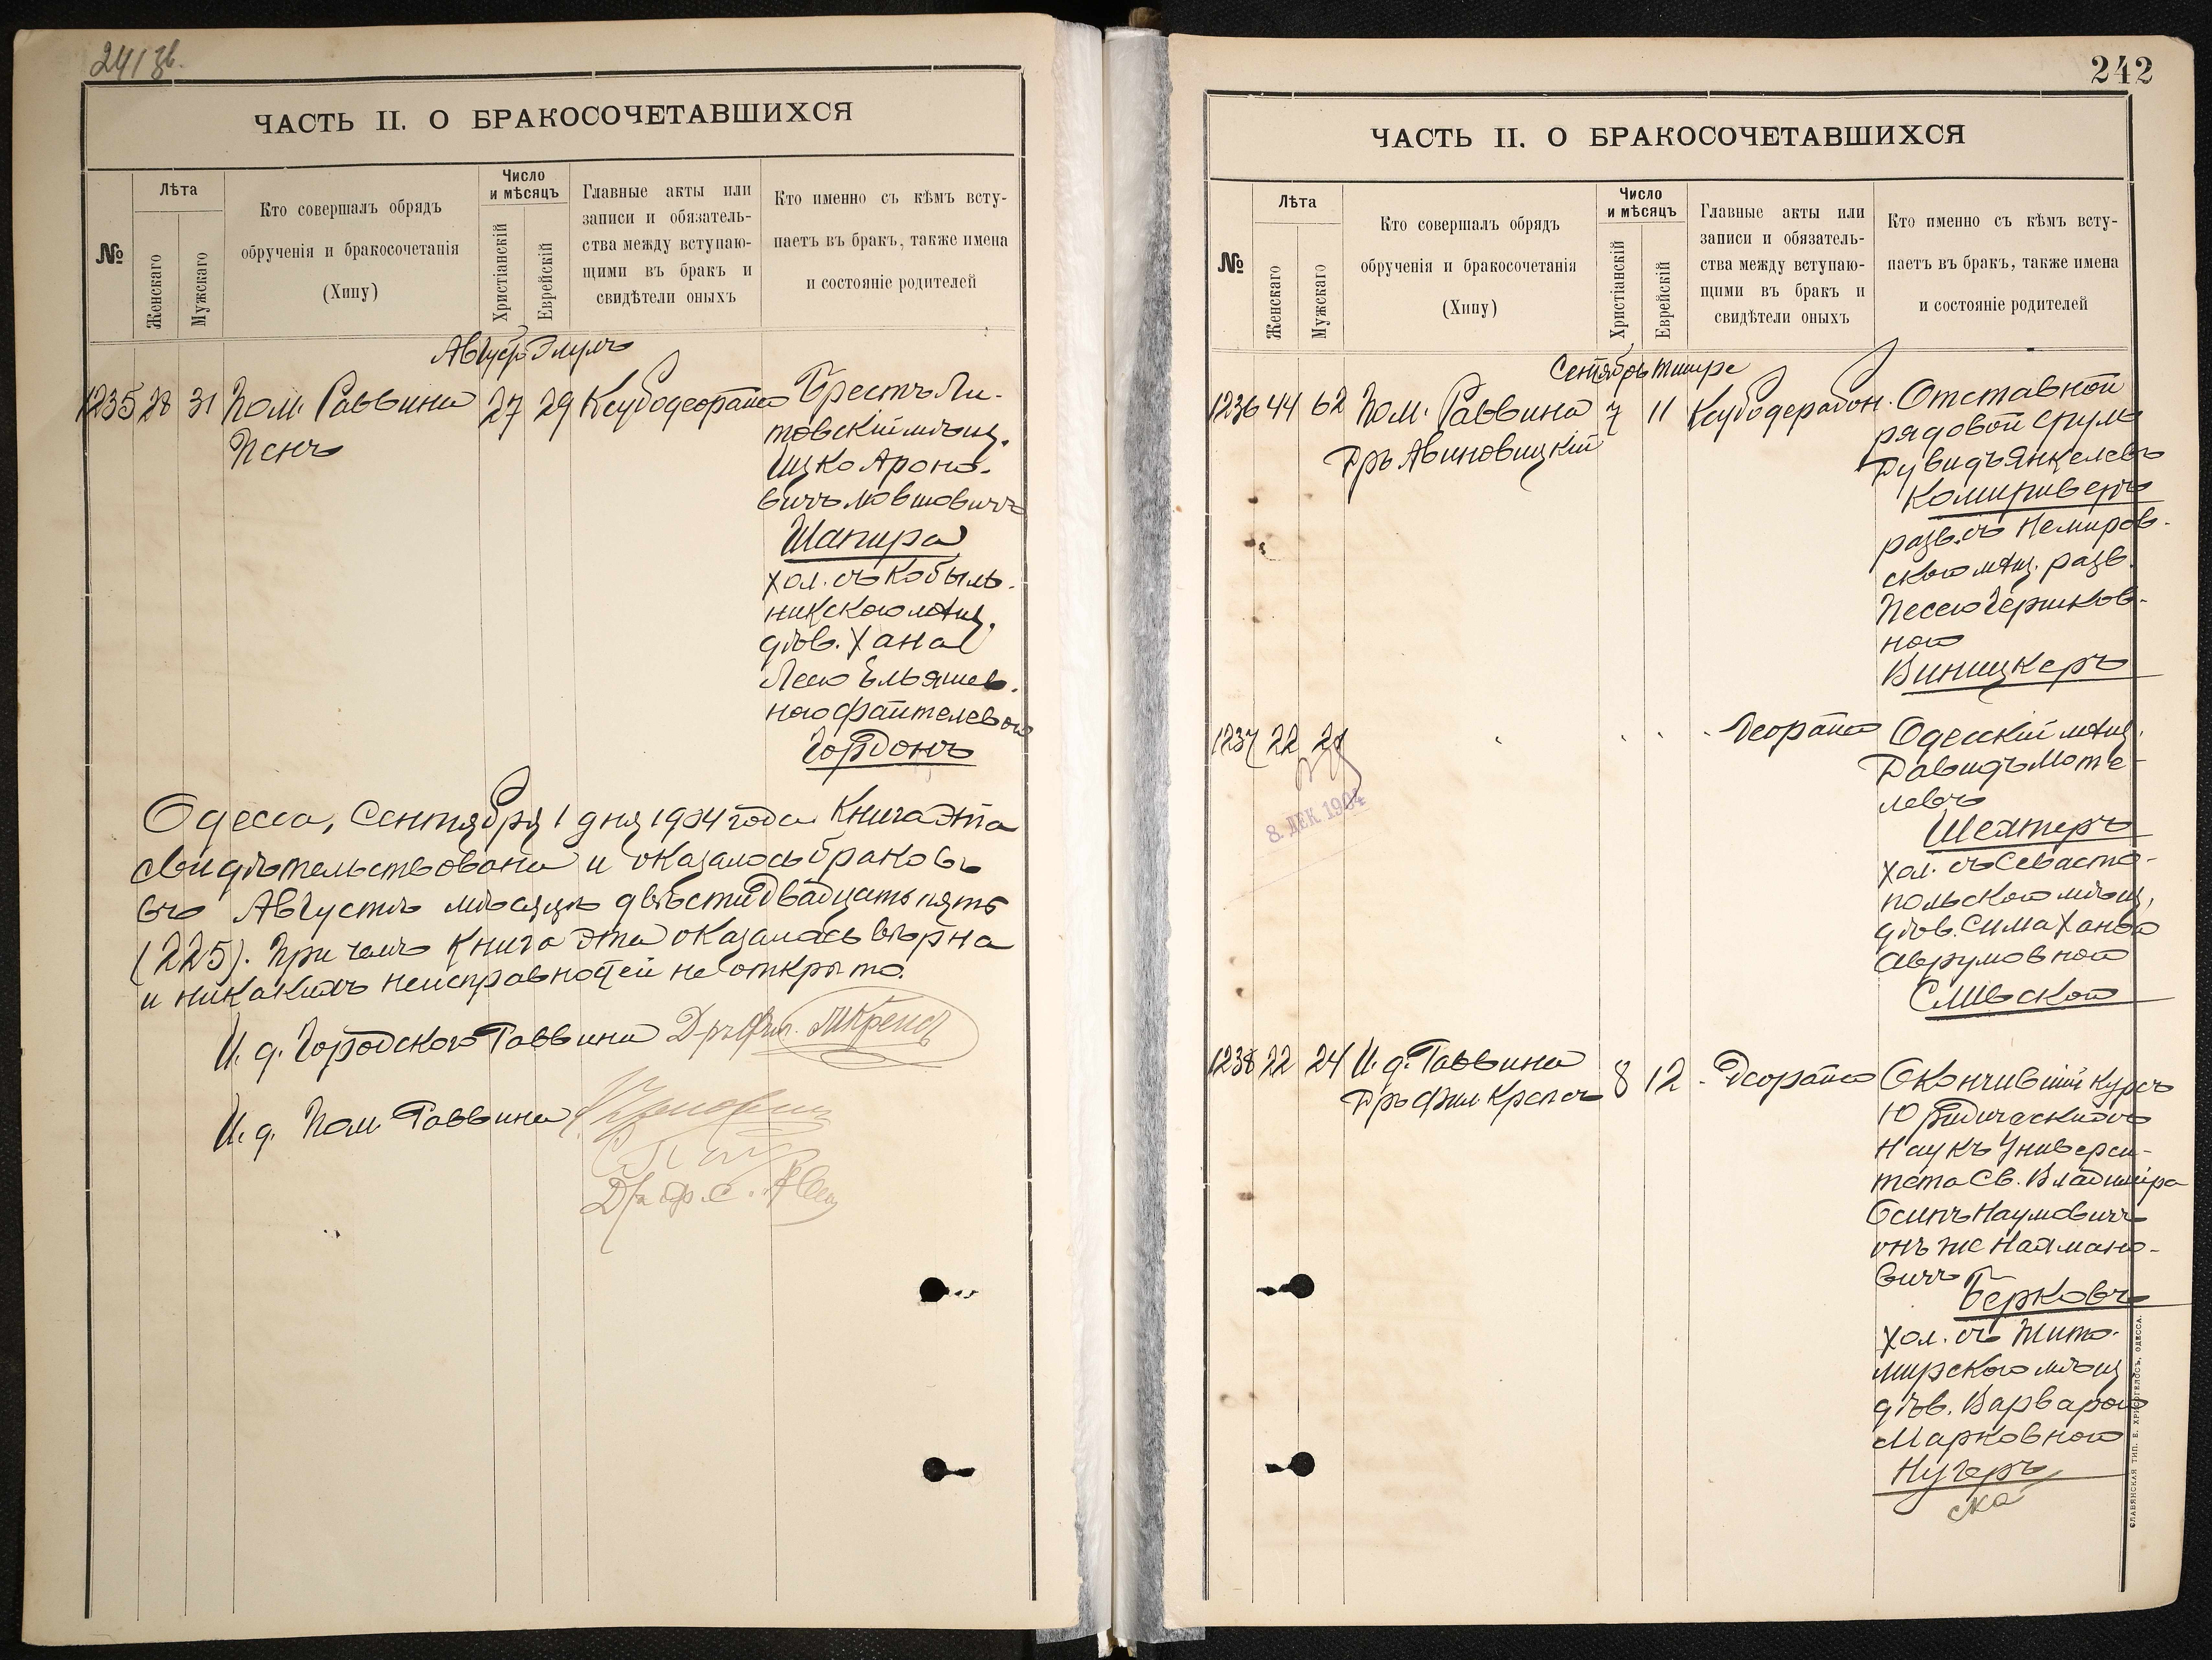 241 об.
ЧАСТЬ II. О БРАКОСОЧЕТАВШИХСЯ
№
Лѣта
Женскаго
Мужскаго
Кто совершалъ обрядъ
обрученія и бракосочетанія
(Хипу)
Число
и мѣсяцъ
Христіанскій
Еврейскій
Главные акты или
записи и обязатель-
ства между вступаю-
щими въ бракъ и
свидѣтели оныхъ
Кто именно съ кѣмъ всту-
паетъ въ бракъ, также имена
и состояніе родителей
Август Элулъ
1235 28 31 Пом. Раввина 27 29
Пенъ
Брестъ Ли-
товскій мѣщ.
Ицко Ароно-
вичъ Мовшовичъ
Шапиро
хол. съ Кобыль-
никскою мѣщ.
дѣв. Хана
Лею Ельяшев.
ною Файтелевою
Гордонъ
Одесса, Сентября 1 дня 1904 года Книга эта
свидѣтельствована и оказалось браковъ
въ Августѣ мѣсяцѣ двѣсти двадцать пять
(225). При чемъ книга эта оказалась вѣрна
и никакихъ неисправностей не открыто.
И. д. Городского Раввина Д-ръ Фил. Крепсъ
И. д. Пом. Раввина
242
ЧАСТЬ II. О БРАКОСОЧЕТАВШИХСЯ
№
Лѣта
Женскаго
Мужскаго
Кто совершалъ обрядъ
обрученія и бракосочетанія
(Хипу)
Число
и мѣсяцъ
Христіанскій
Еврейскій
Главные акты или
записи и обязатель-
ства между вступаю-
щими въ бракъ и
свидѣтели оныхъ
Кто именно съ кѣмъ всту-
паетъ въ бракъ, также имена
и состояніе родителей
Сентябрь Тишре
1236 44 62 Пом. Раввина 7 11
Дръ Авиновицкій
Отставной
рядовой Сруль
Дувидъ Янкелевъ
разв. съ Немиров-
скою мѣщ. разв.
Песею Гершков-
ною
Виницкеръ
1237 22
8. ДЕК 1904
Одесскій мѣщ.
Давидъ Моте-
левъ
Шехтеръ
хол. съ Севасто-
польскою мѣщ.
дѣв. Сима Ханою
Аврумовною
1238 22 24 И. д. Раввина 8 12
Дръ Фил. Крепсъ
Окончившій курсъ
Юридическихъ
Наукъ Универси-
тета Св. Владиміра
Осипъ Наумовичъ
онъ же Нахмано-
вичъ
Берковъ
хол. съ Жито-
мирскою мѣщ
дѣв. Варварою
Марковною
Нугеръ
ска
СЛАВЯНСКАЯ ТИП. Е. ХРИСОГЕЛОСЪ, ОДЕССА.